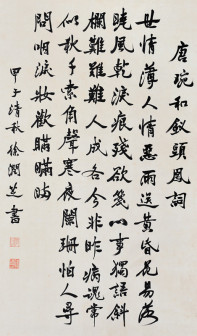 唐琬和釵頭風詞
世情薄人情惡雨送黃昏花易落
曉風乾淚痕殘欲箋心事獨語斜
欄難難難人成各今非昨病魂常
似秋千索角聲寒夜闌珊怕人尋
問咽淚妝歡瞞瞞瞞
甲子清秋徐潤芝書